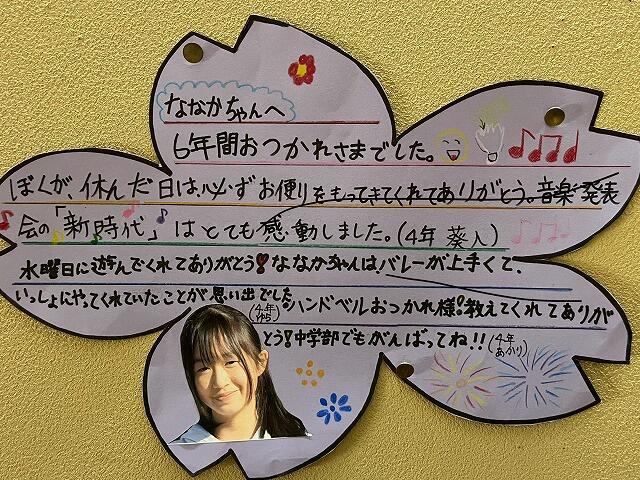 ななかちゃんへ
6年間おつかれさまでした。
ぼくが、休んだ日は、必ずお便りをもってきてくれてありがとう。音楽発表
会の「新時代」はとても感動しました。(4年 葵人)
水曜日に遊んでくれてありがとう!ななかちゃんは、バレーが上手くて、
いっしょにやってくれていたことが思い出でした。(4年 ゆら)ハンドベルおつかれ様!教えてくれてありが
とう!中学部でもがんばってね!!(4年 あかり)